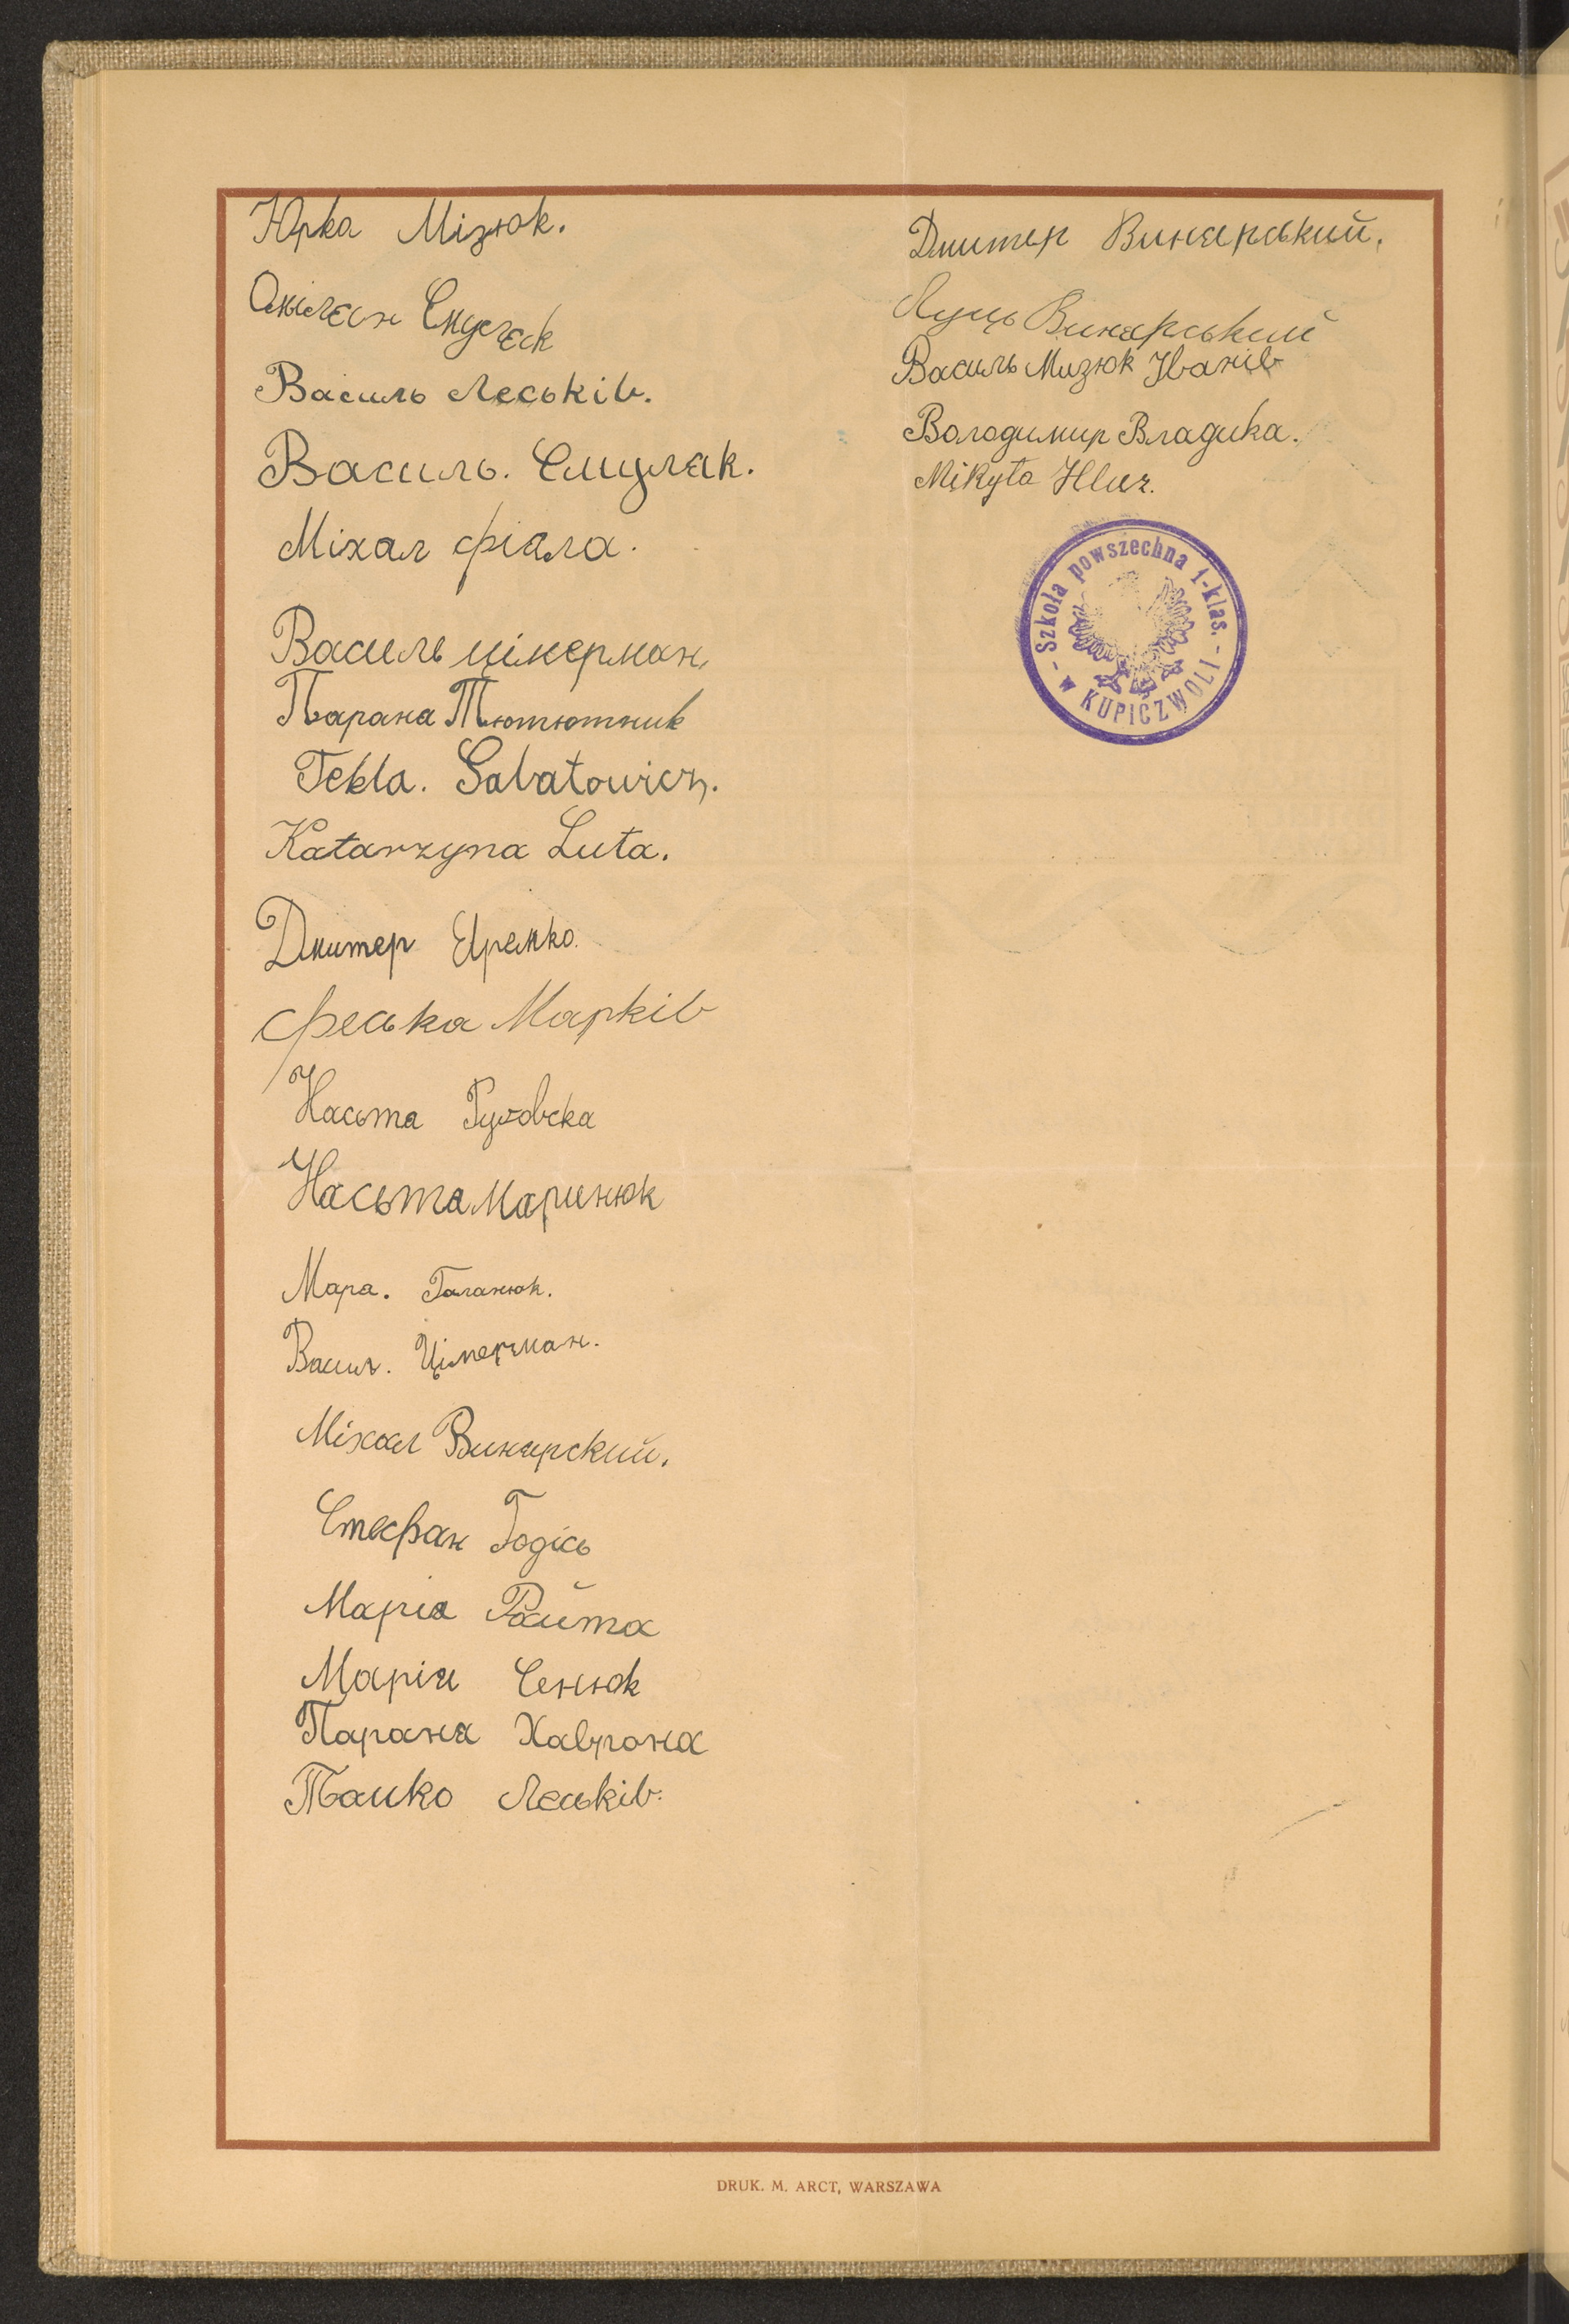 Юрка Мізюк.
Смуляк
Василь Леськів.
Василь. Смуляк.
Міхал фіала.
Василь цімерман,
Параня Тютютник
Tekla. Sabatowicz.
Katarzyna Luta.
Дмитер Яремко.
феська Марків
Насьтя
Насьтя Маринюк
Мара. Галанюк.
Васил. Цімерман.
Міхал Винярский.
Стефан Годісь
Марія Райта
Марія Сенюк
Параня Хаврона
Леськів.
Дмитер Винярський.
Луць Винярський
Василь Мизюк Іванів
Володимир Владика.
Mikyta
- Szkoła powszechna 1-klas. -
w KUPICZWOLI
DRUK. M. ARCT, WARSZAWA